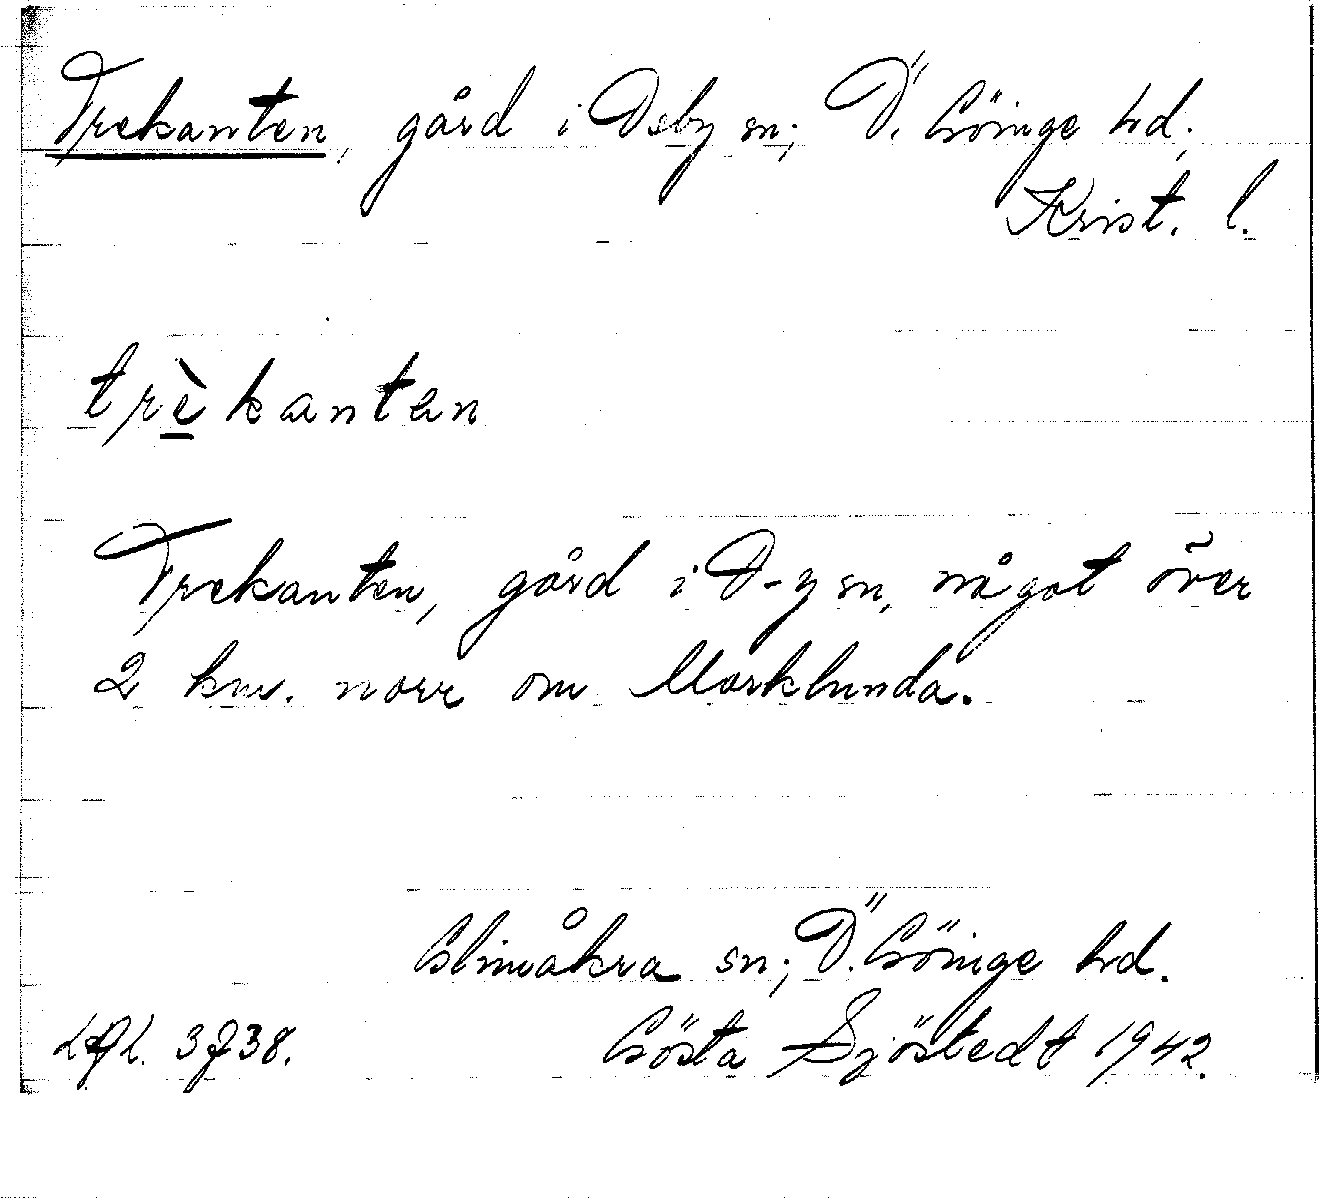 Trekanten, gård i Osby sn; Ö. Göinge hd;
Krist. l.
trèkantan
Trekanten, gård i O-y sn, något över
2 km. norr om Marklunda.
Glimåkra sn; Ö. Göinge hd.
Gösta Sjöstedt 1942.